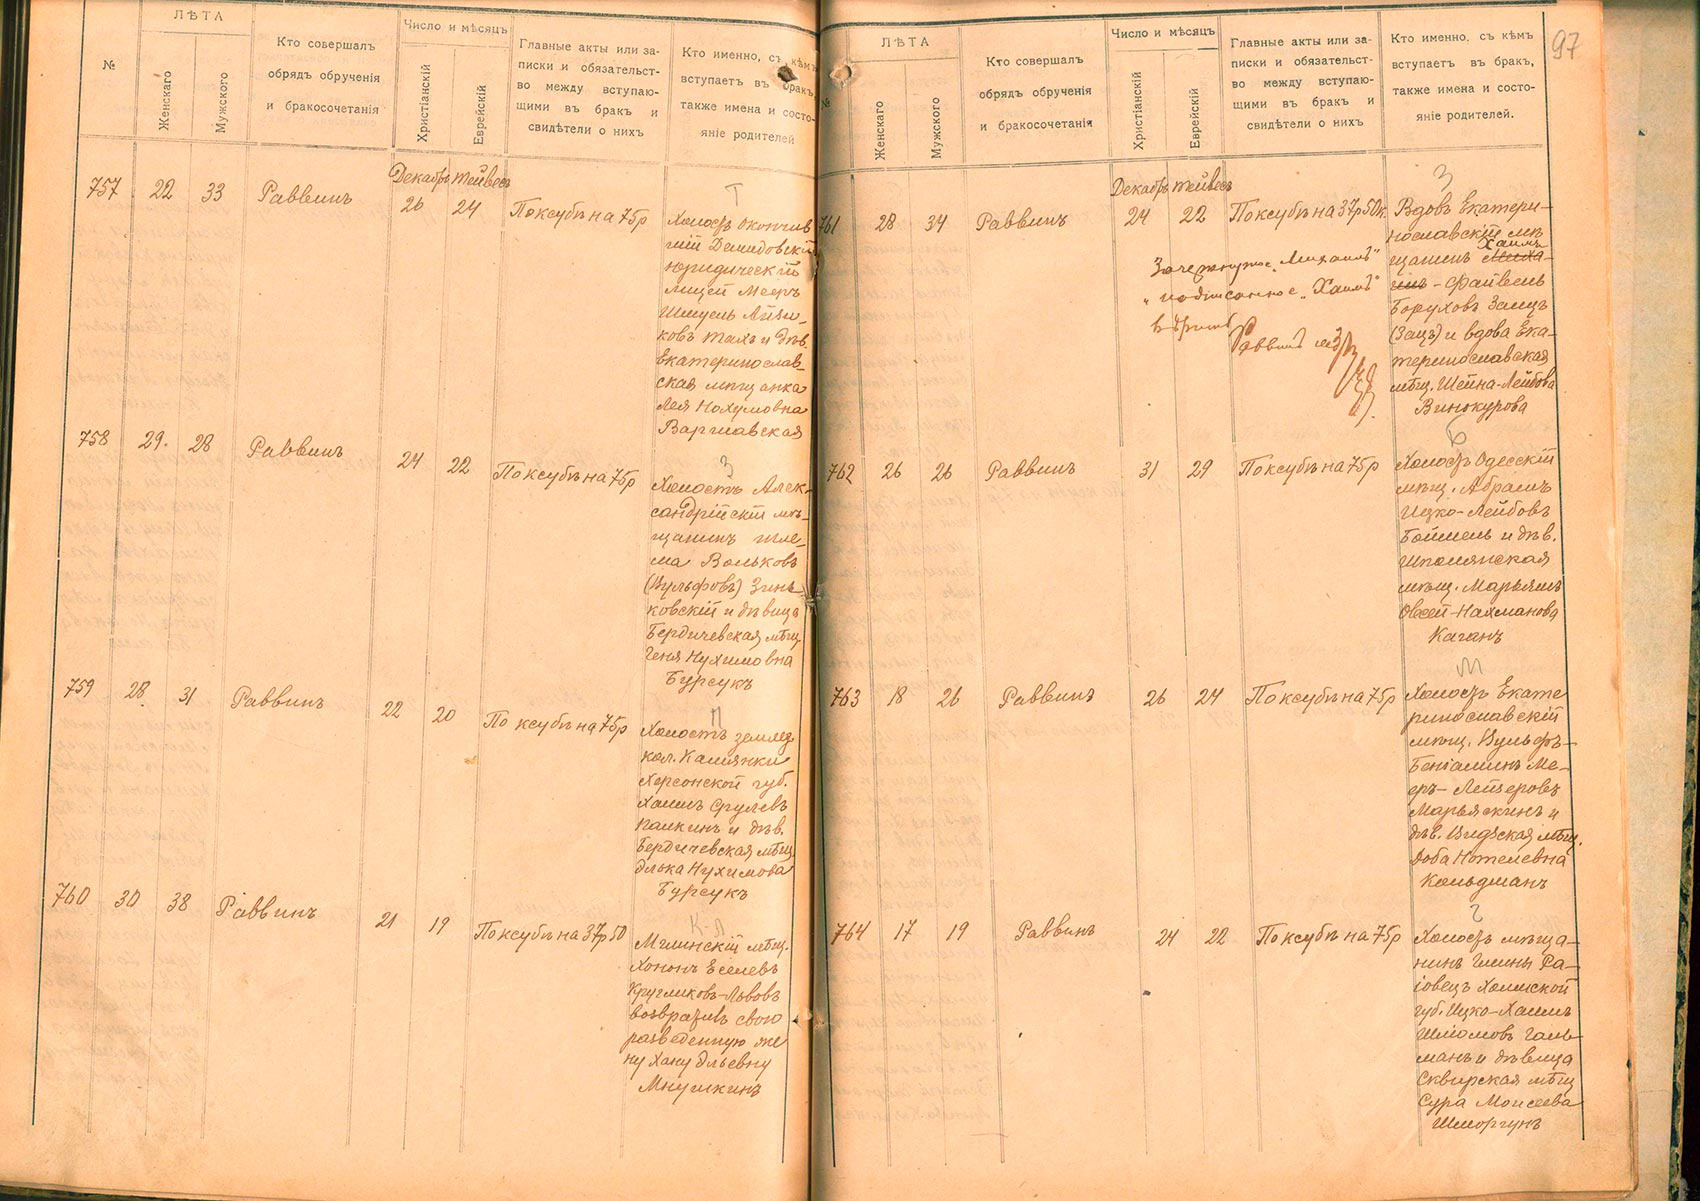 №
ЛѢТА
Женскаго
Мужского
Кто совершалъ
обрядъ обрученія
и бракосочетанія
Число и мѣсяцъ
Христіанскій
Еврейскій
Главные акты или за-
писки и обязательст-
во между вступаю-
щими въ бракъ и
свидѣтели о нихъ
Кто именно, съ кѣмъ
вступаетъ въ бракъ,
также имена и состо-
яніе родителей
757 22 33 Раввинъ
Декабрь Тейвесъ
26 24 По ксубѣ на 75р
Т
Холостъ окончив
шій Демидовскій
юридическій
лицей Мееръ
Шмуель Айзи-
ковъ Талъ и дѣв.
Екатеринослав-
ская мѣщанка
Лея Нохумовна
Варшавская
758 29. 28 Раввинъ 24 22 По ксубѣ на 75р
З
Холостъ Алек-
сандрійскій мѣ-
щанинъ Шле-
ма Вольковъ
(Вульфовъ) Зинь
ковскій и дѣвица
Бердичевская мѣщ.
Геня Нухимовна
Бурсукъ
759 28. 31 Раввинъ 22 20 По ксубѣ на 75р
П
Холостъ землед.
кол. Каменки
Херсонской губ.
Хаимъ Срулевъ
Палкинъ и дѣв.
Бердичевская мѣщ.
Элька Нухимова
Бурсукъ
760 30 38 Раввинъ 21 19 По ксубѣ на 37р 50
К-Л
Мглинскій мѣщ.
Хононъ Еселевъ
Кругликовъ-Львовъ
возвратилъ свою
разведенную же
ну Хану Эльевну
Мнушкинъ
97
№
ЛѢТА
Женскаго
Мужского
Кто совершалъ
обрядъ обрученія
и бракосочетанія
Число и мѣсяцъ
Христіанскій
Еврейскій
Главные акты или за-
писки и обязательст-
во между вступаю-
щими въ бракъ и
свидѣтели о нихъ
Кто именно, съ кѣмъ
вступаетъ въ бракъ,
также имена и состо-
яніе родителей.
761 28 34 Раввинъ
Декабрь Тейвесъ
24 22 По ксубѣ на 37р 50к.
Зачеркнутое „Михаилъ"
„надписанное „Хаимъ"
вѣрить
Раввинъ
З
Вдовъ Екатери-
нославскій мѣ
щанинъ Хаимъ
- Файвель
Боруховъ Заицъ
(Зацъ) и вдова Ека-
теринославская
мѣщ. Шейна-Лейбова
Винокурова
762 26 26 Раввинъ 31 29 По ксубѣ на 75р
Б
Холостъ Одесскій
мѣщ. Абрамъ
Ицко-Лейбовъ
Боймель и дѣв.
Шполянская
мѣщ. Марьямъ
Овсей-Нахманова
Каганъ
763 18 26 Раввинъ 26 24 По ксубѣ на 75р
М
Холостъ Екате
ринославскій
мѣщ. Вульфъ-
Беніаминъ Ме-
еръ-Лейзеровъ
Марьяскинъ и
дѣв. Видзская мѣщ.
Доба Нотелевна
Кольдманъ
764 17 19 Раввинъ 24 22 По ксубѣ на 75р
Г
Холостъ мѣща-
нинъ гмины Ра-
іовецъ Холмской
губ. Ицко-Хаимъ
Шліомовъ Галь-
манъ и дѣвица
Сквирская мѣщ
Сура Моисеева
Шморгунъ